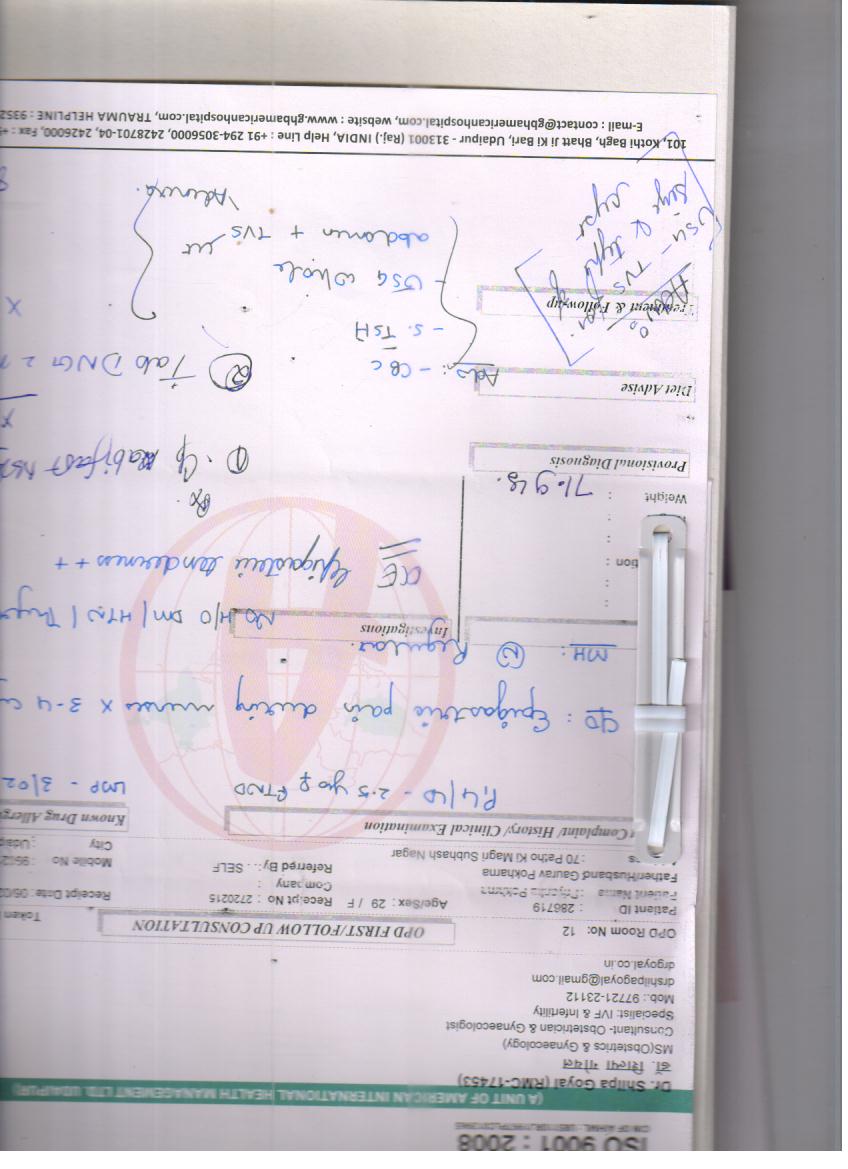 ISO 9001 : 2008
(A UNIT OF AMERICAN INTERNATIONAL HEALTH MANAGEMENT LTD. UDAIPUR)
Dr. Shilpa Goyal (RMC-17453)
डॉ. शिल्पा गोयल
MS(Obstetrics & Gynaecology)
Consultant- Obstetrician & Gynaecologist
Specialist: IVF & Infertility
Mob.: 97721-23112
drshilpagoyal@gmail.com
drgoyal.co.in
OPD Room No: 12
OPD FIRST/FOLLOW UP CONSULTATION
Token
Patient ID : 286719
Age/Sex : 29 / F
Receipt No : 2720215
Receipt Date : 05/02
Patient Name : Pokharna
Company :
Father/Husband Gaurav Pokharna
Referred By: . . SELF
Mobile No : 9602
: 70 Patho Ki Magri Subhash Nagar
City : Udaip
Complaint/ History/ Clinical Examination
Known Drug Allerg
P1L1/LD - 2.5 yr FTND
LMP - 3/02
C/O : Epigastric pain during menses x 3-4
MH : (N) Regular.
Investigations
No H/O DM / HTN / Thy
O/E Epigastric tenderness ++
tion :
Weight : 71.9 kg.
Rx
Provisional Diagnosis
① Cp Rabifast
Diet Advise
② Tab DNG 2
Adv: - CBC
- S. TSH
Treatment & Follow-up
- USG whole
abdomen + TVS
USG - TVS
101, Kothi Bagh, Bhatt Ji Ki Bari, Udaipur - 313001 (Raj.) INDIA, Help Line : +91 294-3056000, 2428701-04, 2426000, Fax : +
E-mail : contact@gbhamericanhospital.com, website : www.gbhamericanhospital.com, TRAUMA HELPLINE : 9352